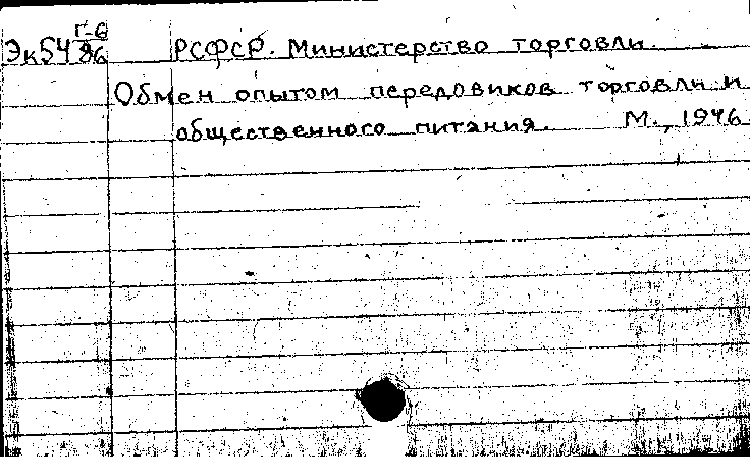 Эк54 Г-6/36 РСФСР. Министерство торговли.
Обмен опытом передовиков торговли и
общественного питания. М., 1946